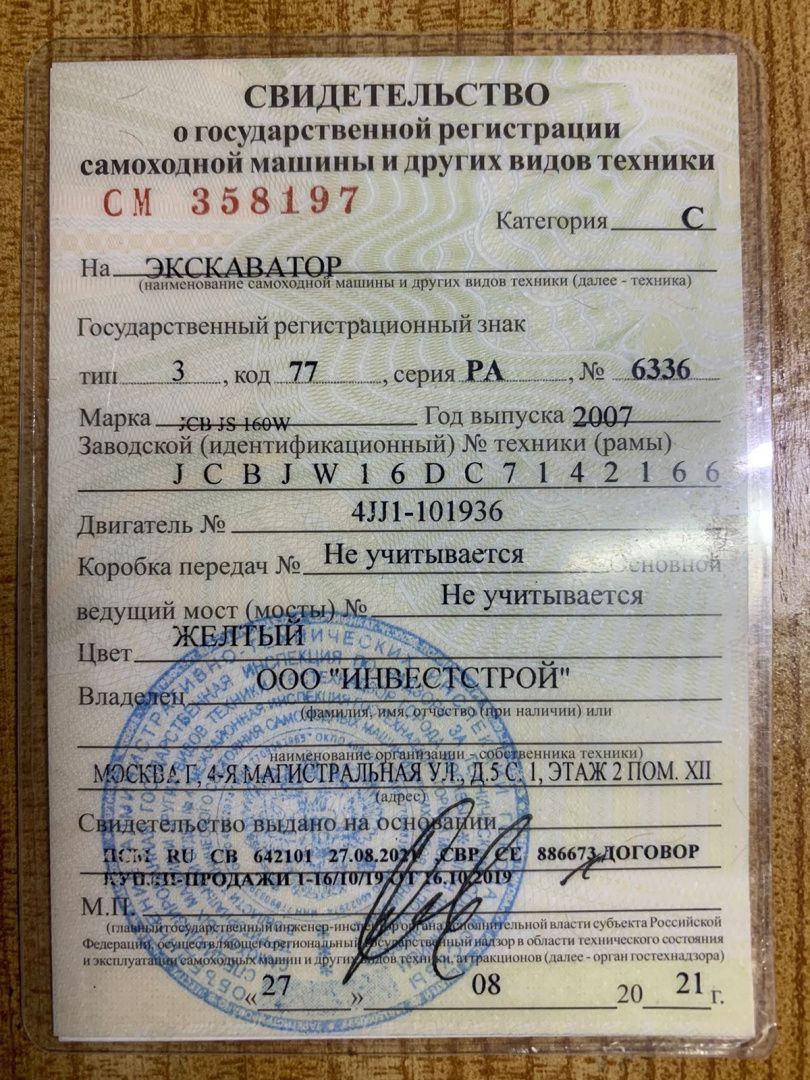 СВИДЕТЕЛЬСТВО
о государственной регистрации
самоходной машины и других видов техники
СМ 358197
Категория С
На ЭКСКАВАТОР
(наименование самоходной машины и других видов техники (далее - техника)
Государственный регистрационный знак
тип 3, код 77, серия РА, № 6336
Марка JCB JS 160W Год выпуска 2007
Заводской (идентификационный) № техники (рамы)
J C B J W 1 6 D C 7 1 4 2 1 6 6
Двигатель № 4JJ1-101936
Коробка передач № Не учитывается основной
ведущий мост (мосты) № Не учитывается
Цвет ЖЕЛТЫЙ
Владелец ООО "ИНВЕСТСТРОЙ"
(фамилия, имя, отчество (при наличии) или
наименование организации - собственника техники)
МОСКВА Г, 4-Я МАГИСТРАЛЬНАЯ УЛ., Д.5 С. 1, ЭТАЖ 2 ПОМ. XII
(адрес)
Свидетельство выдано на основании
ПСМ RU СВ 642101 27.08.2021 СВР СЕ 886673 ДОГОВОР
КУПЛИ-ПРОДАЖИ 1-16/10/19 ОТ 16.10.2019
М.П.
(главный государственный инженер-инспектор органа исполнительной власти субъекта Российской
Федерации, осуществляющего региональный государственный надзор в области технического состояния
и эксплуатации самоходных машин и других видов техники, аттракционов (далее - орган гостехнадзора)
« 27 » 08 20 21 г.